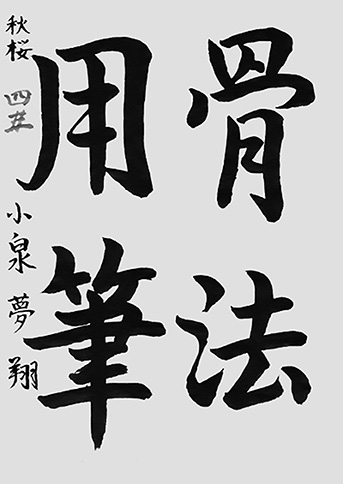 骨法
用筆
秋桜 四段 小泉夢翔